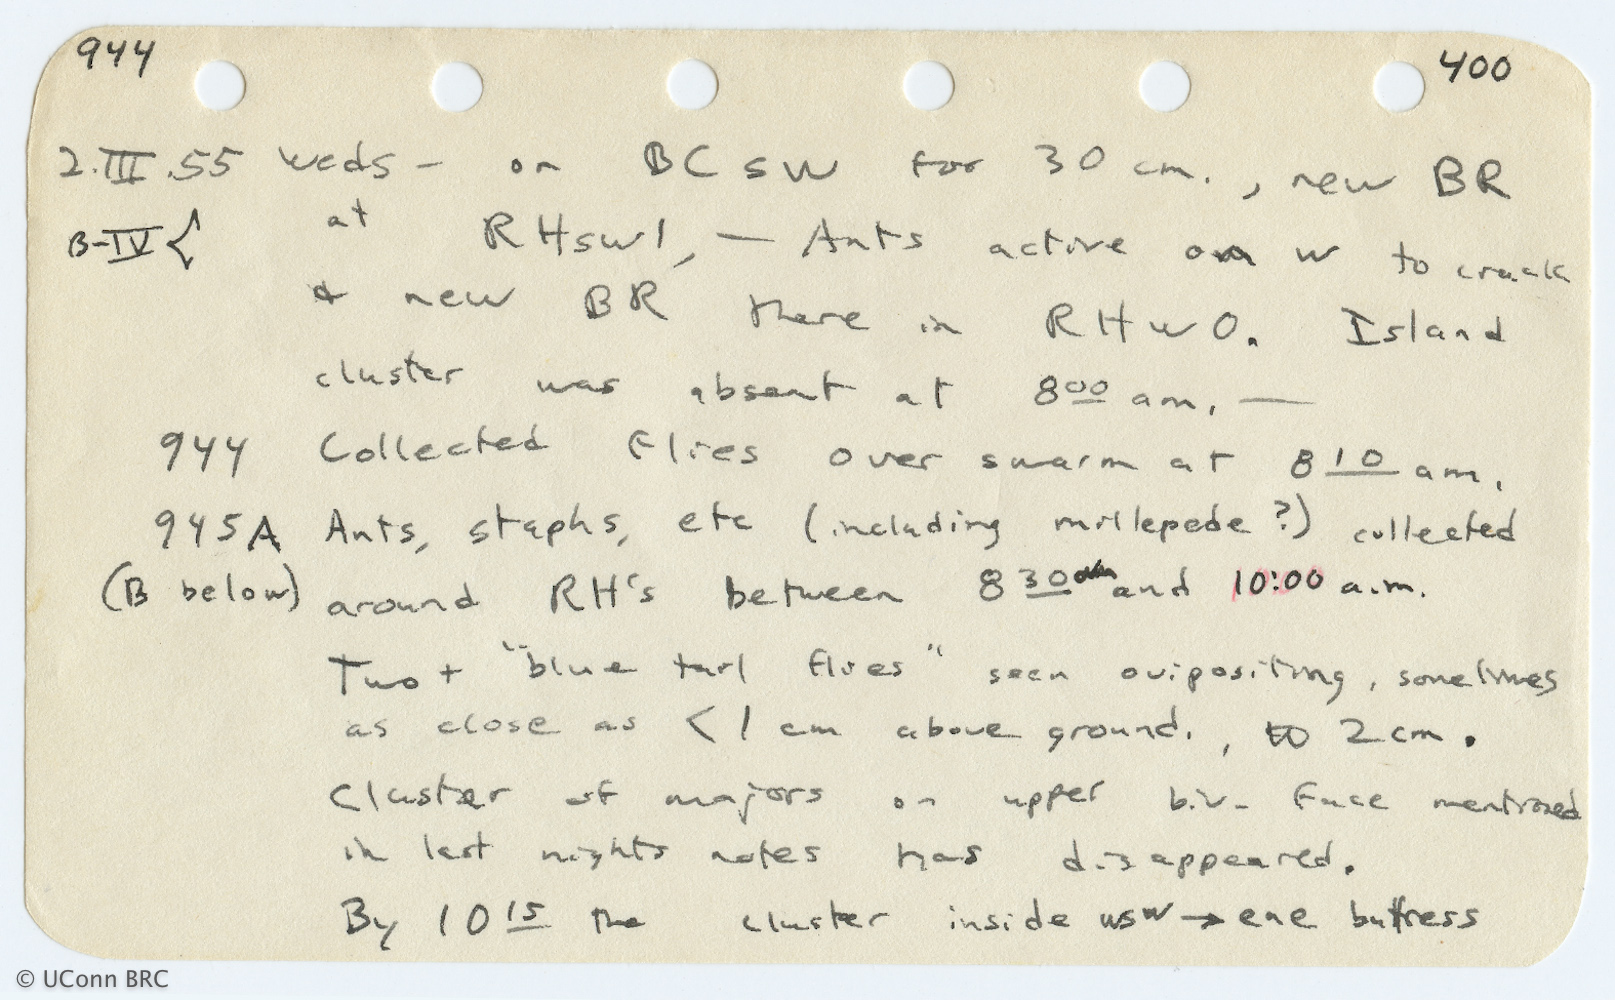 944 400
2.III.55 weds - on BCsw for 30 cm., new BR
B-IV{ at RHsw1, — Ants active on w to crack
& new BR there in RHw0. Island
cluster was absent at 8 00 am. —
944 Collected flies over swarm at 8 10 am.
945A Ants, staphs, etc (including millepede?) collected
(B below) around RH's between 8 30 and 10:00 a.m.
Two + "blue tail flies" seen ovipositing, sometimes
as close as < 1 cm above ground., to 2 cm.
Cluster of majors on upper biv. face mentioned
in last nights notes has disappeared.
By 10 15 the cluster inside wsw → ene buttress
© UConn BRC